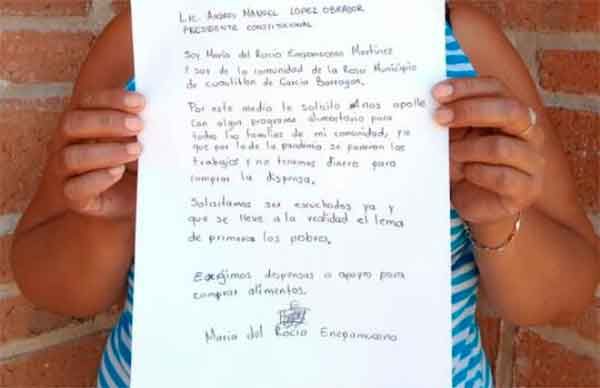 LIC. ANDRES MANUEL LOPEZ OBRADOR
PRESIDENTE CONSTITUCIONAL
Soy María del Rocio Enepamuceno Martinez
Y soy de la comunidad de la Rosa Municipio
de cuautitlan de García Barragan.
Por este medio le solicito Anos apolle
con algun programa alimentario para
todas las familias de mi comunidad, ya
que por lo de la pandemia se pararon los
trabajos y no tenemos dinero para
comprar la dispensa.
Solicitamos ser escuchados ya y
que se lleve a la realidad el lema
de primeros los pobres.
Exigimos despensas o apoyo para
comprar alimentos.
María del Rocio Enepamuceno